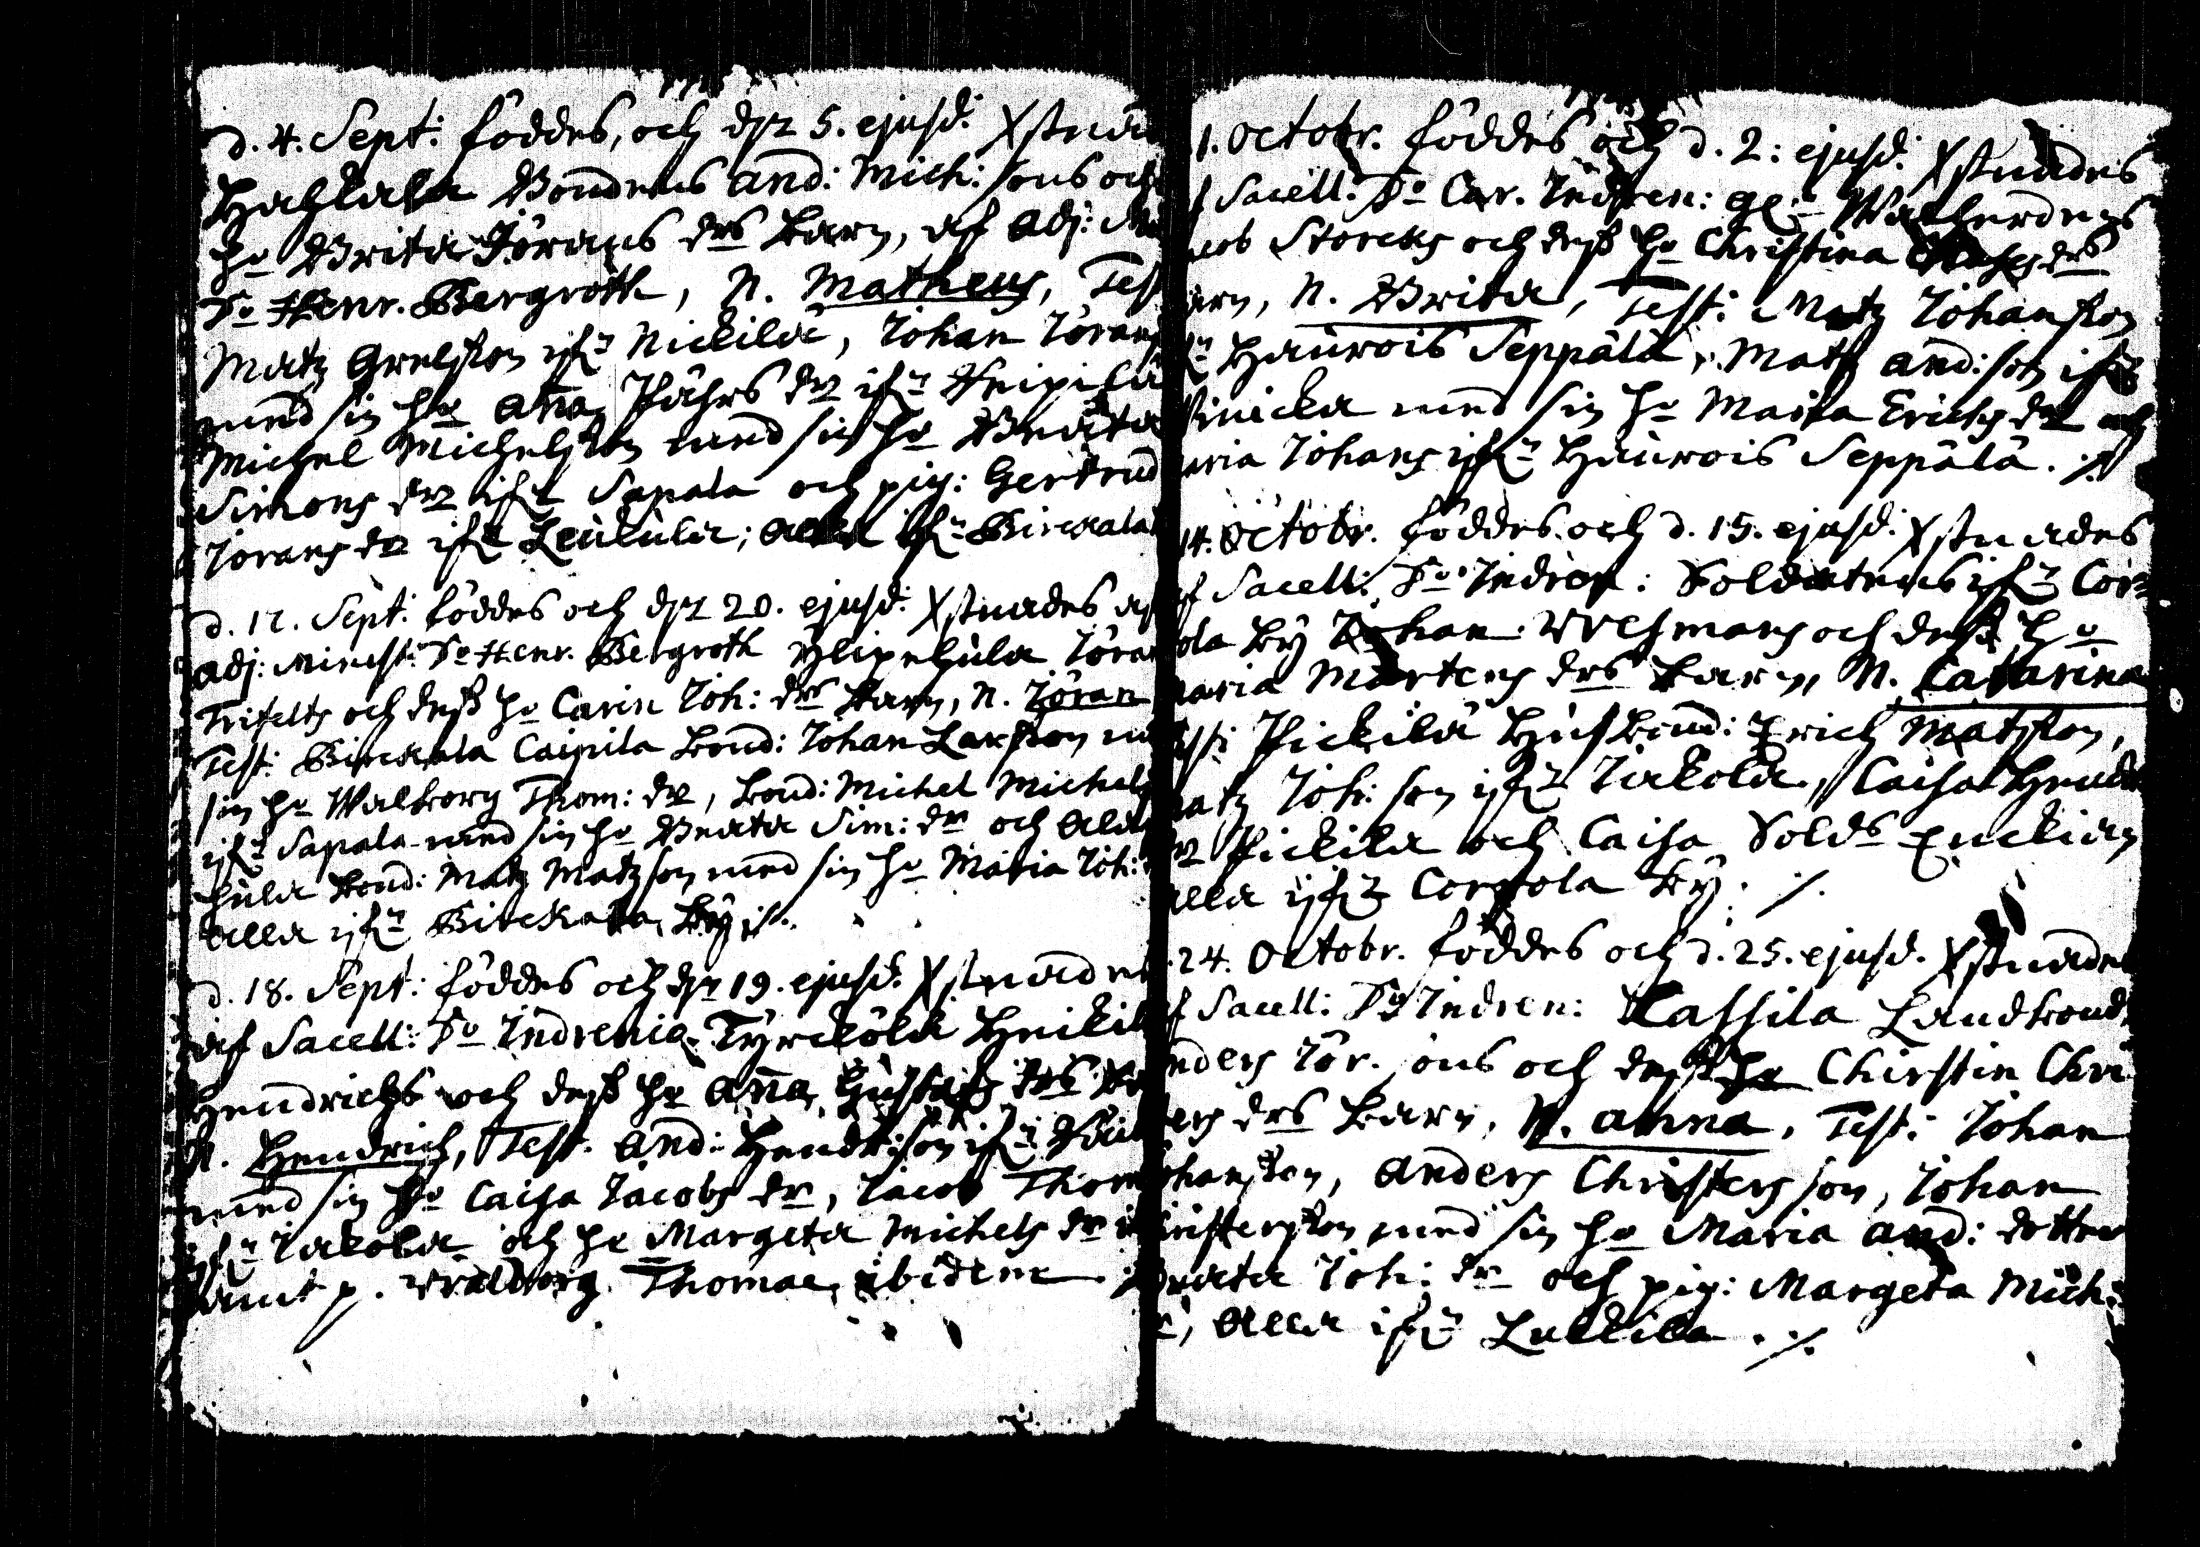 d. 4. Sept: föddes, och dhn 5. ejusd: Xstnad
Hahkala Bondens And: Mich: sons och
ho Brita Jörans drs barn, af Adj: M
Do Henr. Bergroth, N. Matheus, Test
Matz Grelsson ifrn Nickilä, Johan Jörans
med sin ho Anna Påhrs dr ifrn Knipilä
Michel Michelsson med sin ho Beata
Simons dr ifrn Sapala och pig: Gertrud
Jörans dr ifrn Leukula; alla ifrn Birckala
d. 17. Sept: föddes och dhn 20. ejusd: Xstnades af
Adj: Minist: Do Henr. Bergroth Ylipehula Jöran
Trifelts och dess ho Carin Joh: drs barn, N. Jöran
Test: Birckala Caipila bond: Johan Larsson
sin ho Walborg Thom: dr, bond: Michel Michels
ifrn Sapala med sin ho Beata Sim: dr och Ala
hula bond: Matz Matzson med sin ho Maria Joh:
alla ifrn Birckala by ./.
d. 18. Sept: föddes och dhn 19. ejusd: Xstnades
af Sacell: Do Indrenio Tyrckölä Heikil
Hendrichs och dess ho Anna Gustafs drs
N. Hendrich, Test. And: Hendr:son ifrn
med sin ho Caisa Jacobs dr, Jacob Thom
ifrn Jakola och ho Margeta Michels dr
samt p. Walborg Thomae ibidem
1. Octobr. föddes och d. 2: ejusd: Xstnades
f Sacell: Do Car. Indren:
cob Storcks och dess ho Christina drs
arn, N. Brita, Test: Matz Johansson
Haurois Seppälä, Matz And:son ifrn
med sin ho Maria Erichs dr och
aria Johans ifrn Haurois Seppälä. ./.
14. Octobr. föddes och d. 15. ejusd: Xstnades
f Sacell: Do Indren: Soldatens ifrn Cor
ola by Johan och dess ho
aria Mårtens drs barn, N. Catarina
est: Pickilä Husbond: Erich Matzson,
atz Joh: son ifrn Jakola, Caisa Hend
dr Pickilä och Caisa Solds Enckian
alla ifrn Corpola by. ./.
24. Octobr. föddes och d. 25. ejusd. Xstnades
f Sacell: Do Indren: Lassila Landbond
nders Jör. sons och dess ho Chirstin Chri
ers drs barn, N. Anna, Test: Johan
ohansson, Anders Christersson, Johan
hristersson med sin ho Maria And: dotter
eata Joh: dr och pig: Margeta Mich:
r, alla ifrn Lukkila. ./.